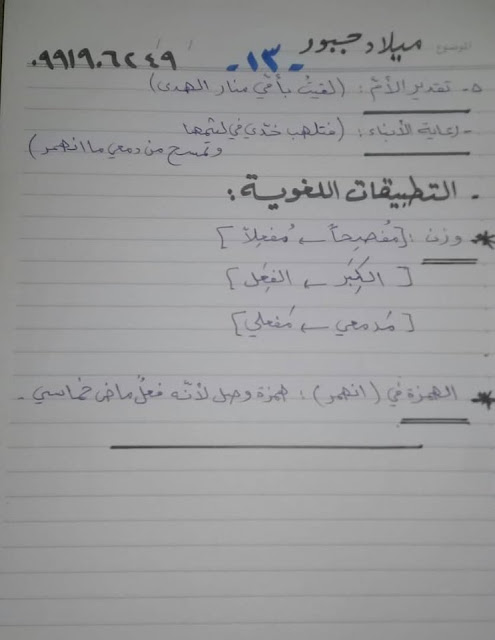 الموضوع ميلاد جبور
- ١٣ - ٠٩٩١٩٠٦٢٤٩
٥- تقدير الأمّ : (لقيتُ بأمّي منار الهدى)
- رعاية الأبناء : (فتلهب خدّي في لثمها
وتمسح من دمعي ما انهمر)
- التطبيقات اللغوية :
* وزن : [مُفصِحاً ← مُفعِلاً]
[الكِبَر ← الفِعَل]
[مَدمعي ← مَفعلي]
* الهمزة في (انهمر) : همزة وصل لأنّه فعلٌ ماضٍ خماسي .